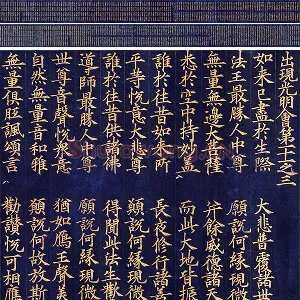 出現光明會第十一之三
如來已盡於生際　大悲普覆諸世
法王最勝人中尊　願說何緣現微
無量無邊大菩薩　并餘威德諸
悉於空中持妙蓋　而此大地皆振
誰於往昔如來所　長夜修行諸
平等悅意大悲尊　願說何緣現微
誰於往昔供諸佛　得聞此法生歡
導師最勝人中尊　願說何緣現微
世尊音聲悅衆意　猶如鴈王聲美
自然無量音和雅　願說何故放斯
無量俱胝諷頌言　勸讚悅可相應